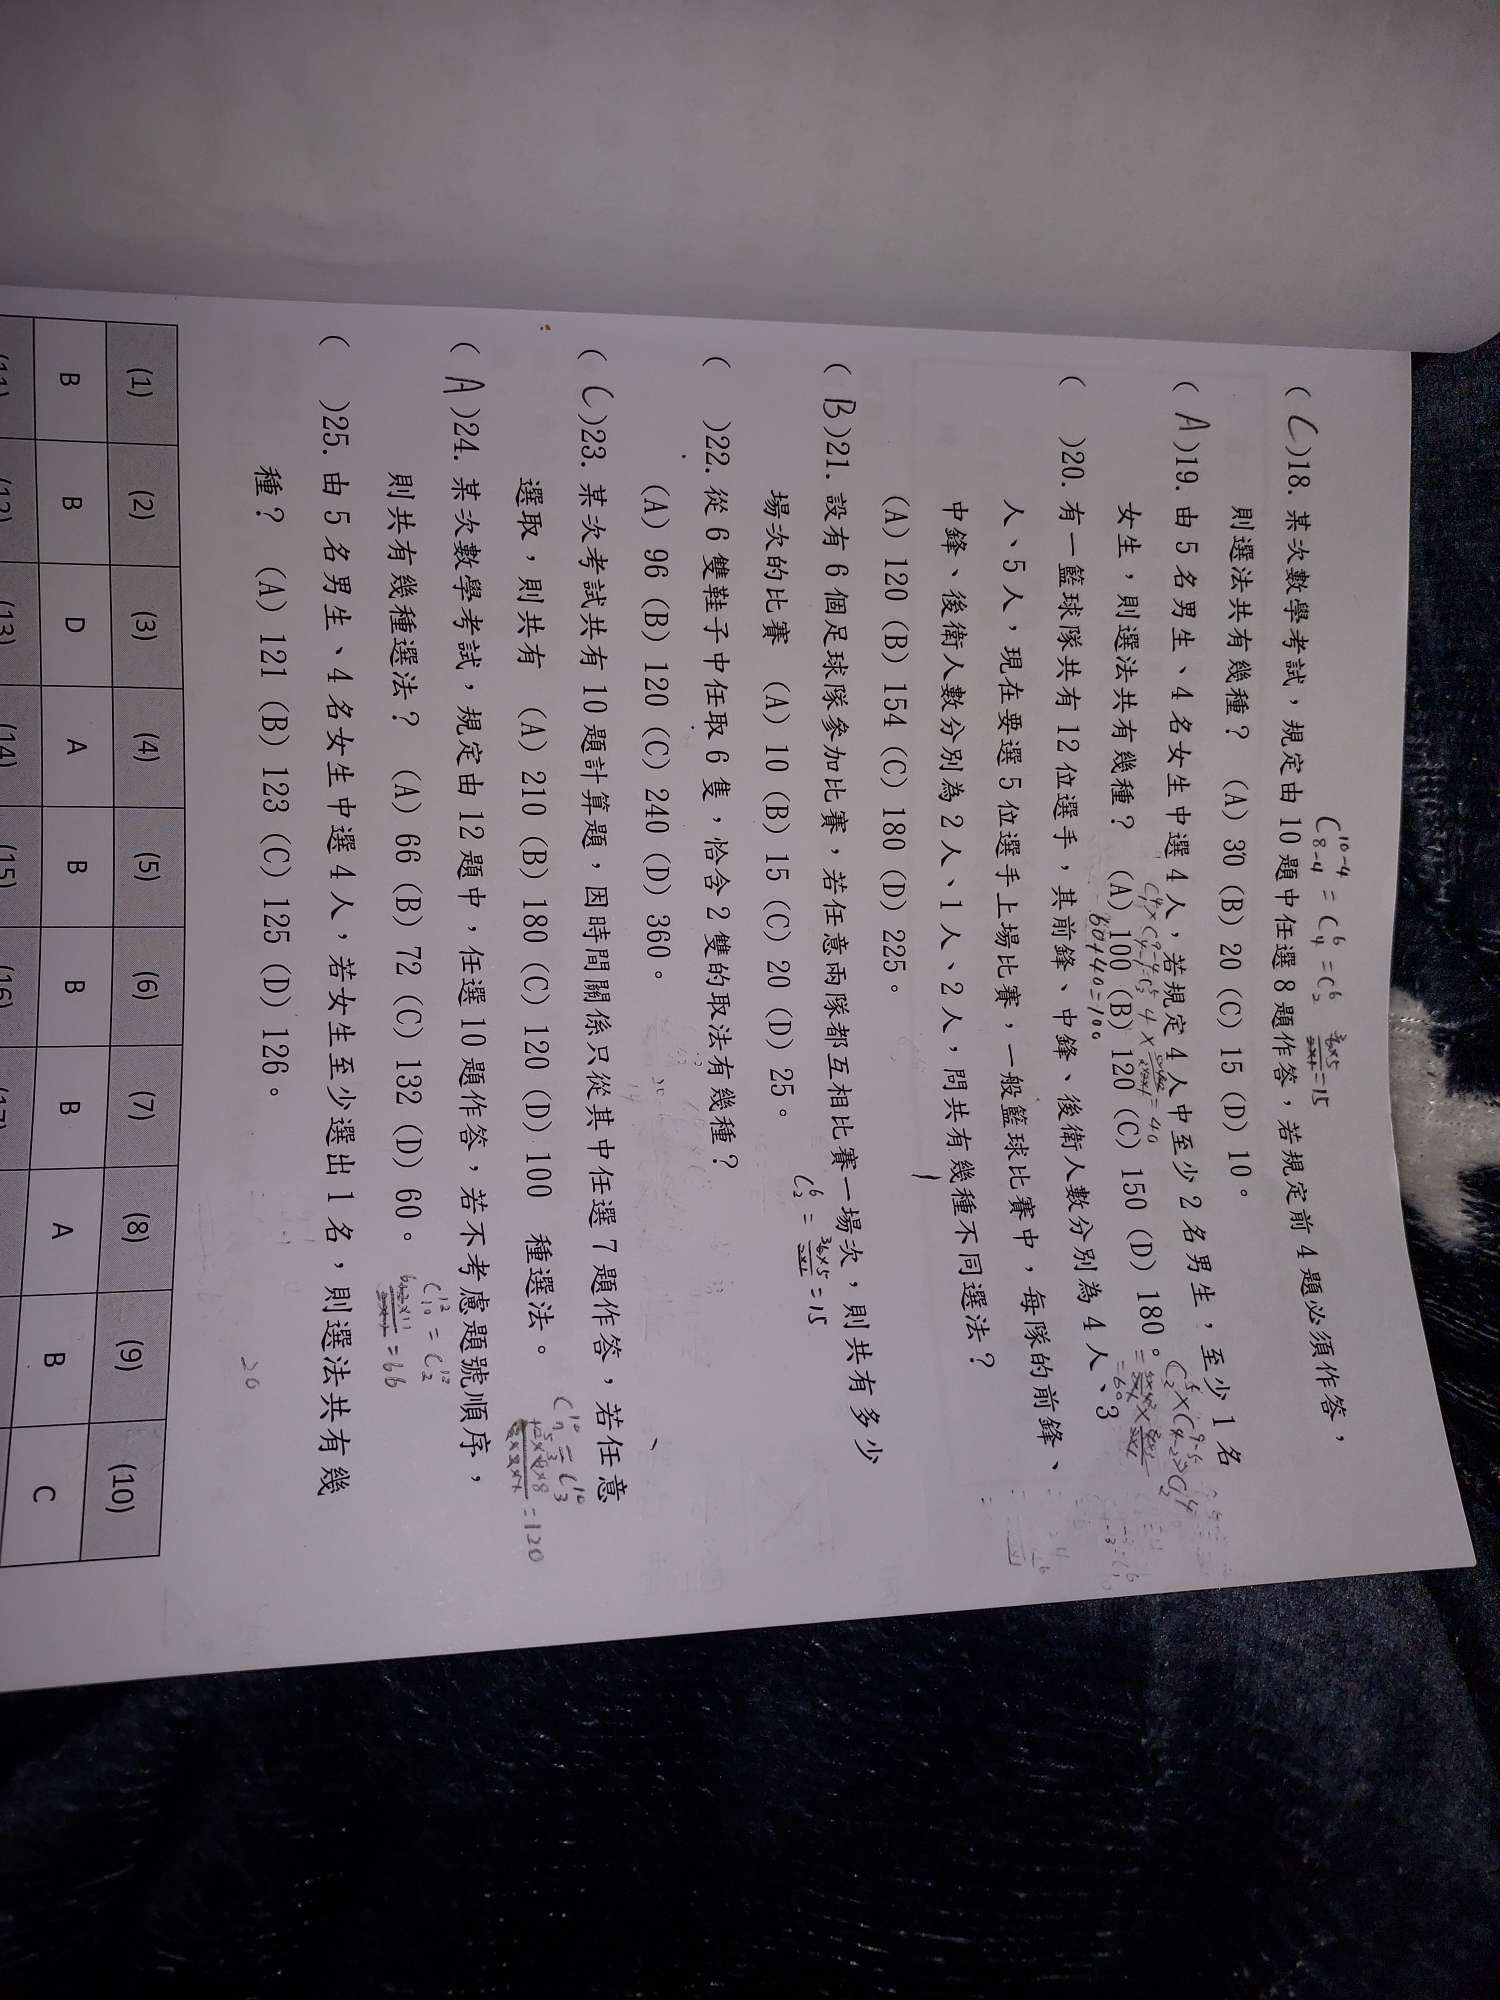 C^{10-4}_{8-4} = C^6_4 = C^6_2 = 15
( C )18. 某次數學考試，規定由 10 題中任選 8 題作答，若規定前 4 題必須作答，
則選法共有幾種？ (A) 30 (B) 20 (C) 15 (D) 10。
( A )19. 由 5 名男生、4 名女生中選 4 人，若規定 4 人中至少 2 名男生，至少 1 名
女生，則選法共有幾種？ (A) 100 (B) 120 (C) 150 (D) 180。
=60
60+40=100
( )20. 有一籃球隊共有 12 位選手，其前鋒、中鋒、後衛人數分別為 4 人、3
人、5 人，現在要選 5 位選手上場比賽，一般籃球比賽中，每隊的前鋒、
中鋒、後衛人數分別為 2 人、1 人、2 人，問共有幾種不同選法？
(A) 120 (B) 154 (C) 180 (D) 225。
( B )21. 設有 6 個足球隊參加比賽，若任意兩隊都互相比賽一場次，則共有多少
場次的比賽 (A) 10 (B) 15 (C) 20 (D) 25。
C^6_2 = = 15
( )22. 從 6 雙鞋子中任取 6 隻，恰含 2 雙的取法有幾種？
(A) 96 (B) 120 (C) 240 (D) 360。
( C )23. 某次考試共有 10 題計算題，因時間關係只從其中任選 7 題作答，若任意
選取，則共有 (A) 210 (B) 180 (C) 120 (D) 100 種選法。
C^{10}_7 = C^{10}_3
=120
( A )24. 某次數學考試，規定由 12 題中，任選 10 題作答，若不考慮題號順序，
則共有幾種選法？ (A) 66 (B) 72 (C) 132 (D) 60。
C^{12}_{10} = C^{12}_2
=66
( )25. 由 5 名男生、4 名女生中選 4 人，若女生至少選出 1 名，則選法共有幾
種？ (A) 121 (B) 123 (C) 125 (D) 126。
(1) (2) (3) (4) (5) (6) (7) (8) (9) (10)
B B D A B B B A B C
(11) (12) (13) (14) (15) (16) (17)